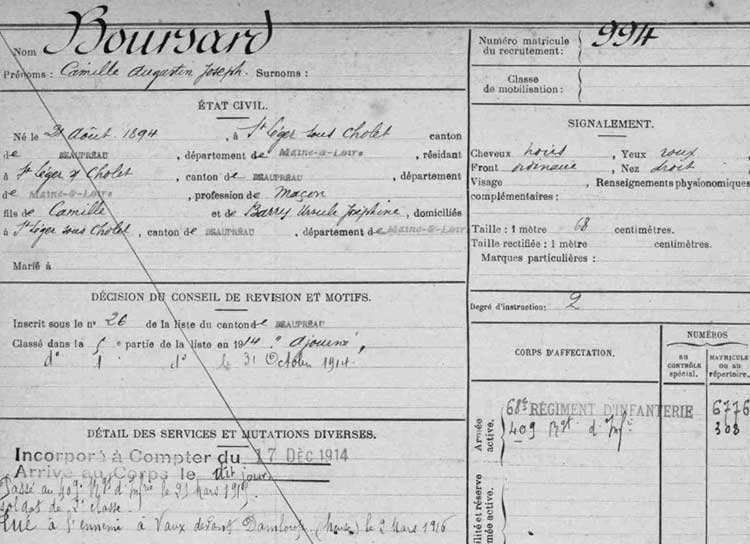 Nom Boursard
Prénoms : Camille Augustin Joseph. Surnoms :
ÉTAT CIVIL.
Né le 21 Août 1894, à St Léger sous Cholet canton
de BEAUPRÉAU, département de Maine-&-Loire, résidant
à St Léger s/ Cholet, canton de BEAUPRÉAU, département
de Maine-&-Loire, profession de Maçon
fils de Camille et de Barry Ursule Joséphine, domiciliés
à St Léger sous Cholet, canton de BEAUPRÉAU, département de Maine-&-Loire
Marié à
DÉCISION DU CONSEIL DE REVISION ET MOTIFS.
Inscrit sous le no 26 de la liste du canton de BEAUPRÉAU
Classé dans la 5e partie de la liste en 1914 " Ajourné "
do 1 do le 31 Octobre 1914.
DÉTAIL DES SERVICES ET MUTATIONS DIVERSES.
Incorporé à Compter du 17 DÉC 1914
Arrivé au Corps le dit jour
Passé au 409e Rgt d'Infrie le 21 Mars 1915
soldat de 2e classe.
Tué à l'ennemi à Vaux devant Damloup (Meuse) le 2 Mars 1916
Numéro matricule
du recrutement: 994
Classe
de mobilisation:
SIGNALEMENT.
Cheveux noirs, Yeux roux
Front ordinaire, Nez droit
Visage , Renseignements physionomiques
complémentaires :
Taille : 1 mètre 68 centimètres.
Taille rectifiée : 1 mètre centimètres.
Marques particulières :
Degré d'instruction: 2
CORPS D'AFFECTATION.
NUMÉROS
AU
CONTRÔLE
spécial.
MATRICULE
ou au
répertoire.
Armée
active.
68e RÉGIMENT D'INFANTERIE 6776
409 Rgt d'Infie 308
ilité et réserve
mée active.